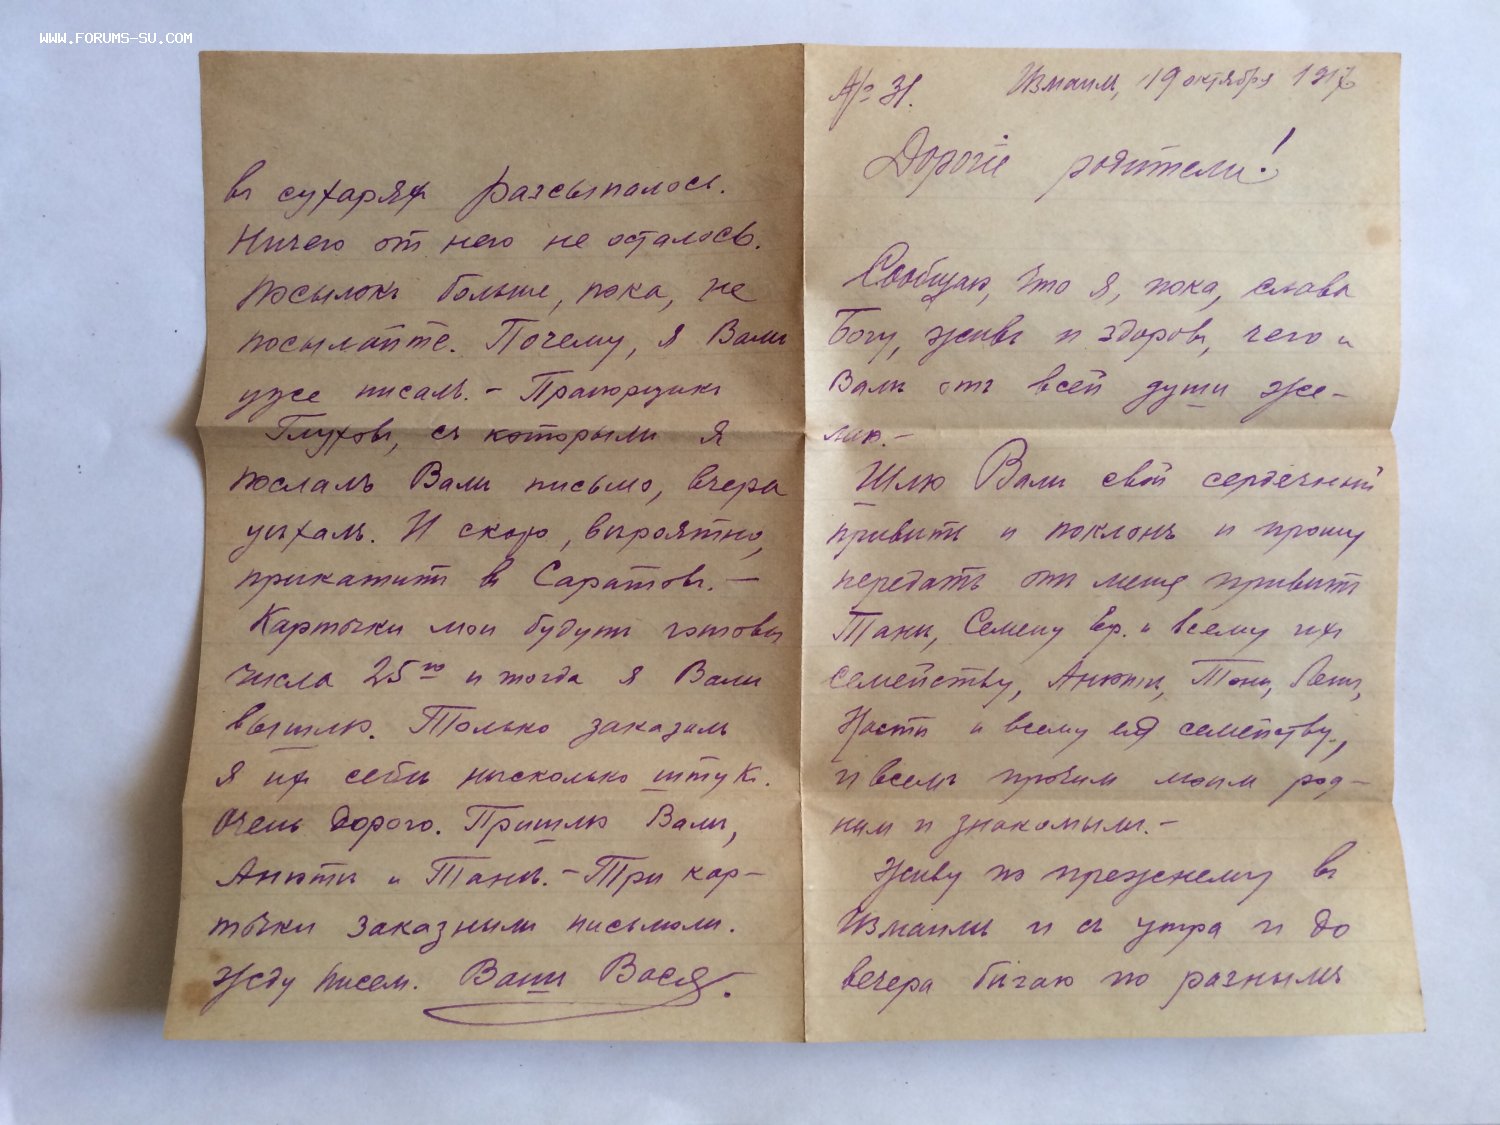 WWW.FORUMS-SU.COM
№ 31. Измаил, 19 октября 1917
Дорогіе родители!
Сообщаю, что я, пока, слава
Богу, живъ и здоровъ, чего и
Вамъ отъ всей души же-
лаю.-
Шлю Вам свой сердечный
привѣтъ и поклонъ и прошу
передать отъ меня привѣтъ
Танѣ, Семену и всему ихъ
семейству, Анютѣ, Тонѣ,
Настѣ и всему ея семейству,
и всемъ прочим моим род-
ным и знакомым.-
Живу по прежнему въ
Измаилѣ и съ утра и до
вечера бѣгаю по разнымъ
въ сухаряхъ разсыпалось.
Ничего от него не осталось.
Посылокъ больше, пока, не
посылайте. Почему, я Вам
уже писалъ.- Прапорщикъ
Глуховъ, съ которым я
послалъ Вам письмо, вчера
уѣхалъ. И скоро, вѣроятно,
прикатитъ въ Саратовъ.-
Карточки мои будутъ готовы
числа 25го и тогда я Вам
вышлю. Только заказал
я ихъ себѣ нѣсколько штукъ.
Очень дорого. Пришлю Вам,
Анютѣ и Танѣ.- Три кар-
точки заказным письмом.
Жду писем. Ваш Вася.